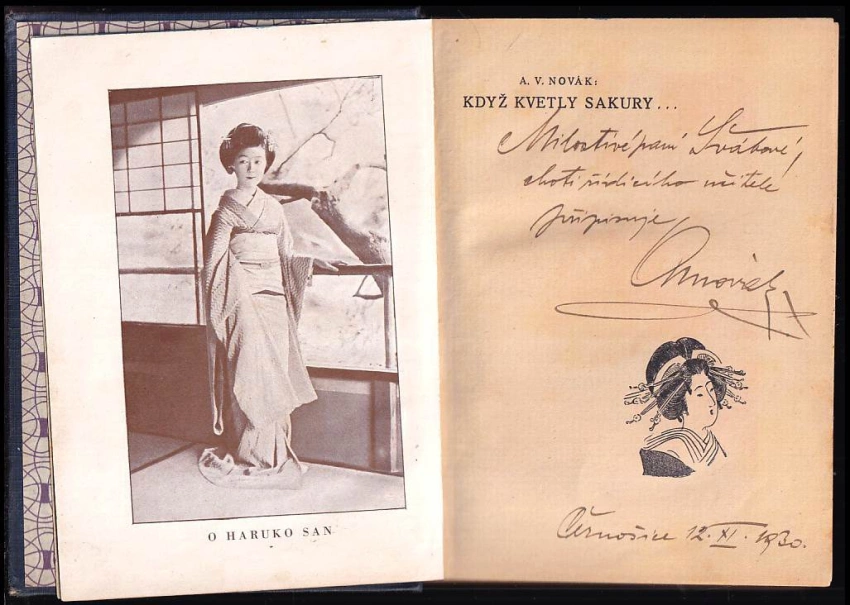 O HARUKO SAN
A. V. NOVÁK:
KDYŽ KVETLY SAKURY...
Milostivé paní Švábové,
choti řídícího učitele
připisuje
AVNovák
Černošice 12. XI. 1930.